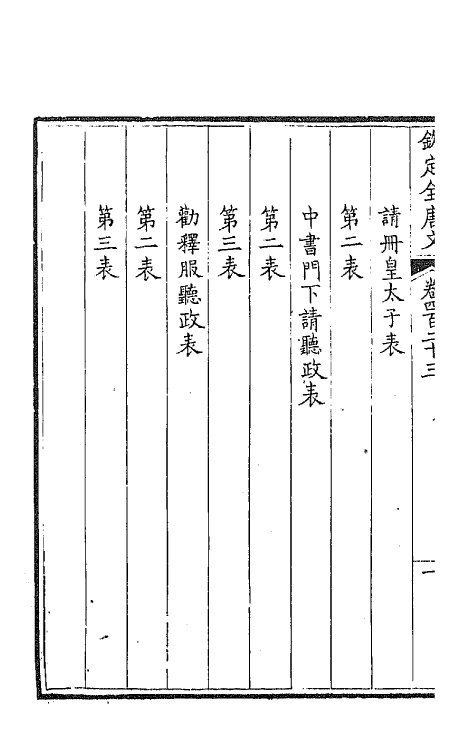 欽定全唐文 卷四百二十三 一
請冊皇太子表
第二表
中書門下請聽政表
第二表
第三表
勸釋服聽政表
第二表
第三表